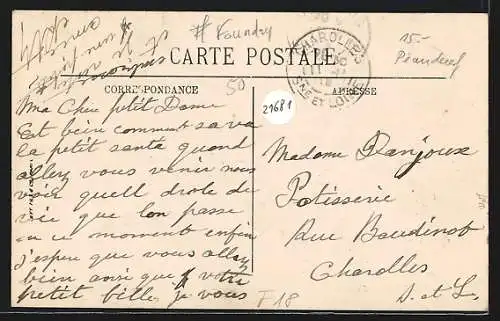 # Foundry
15-
CARTE POSTALE
CHAROLLES
SNE ET LOIRE
CORRESPONDANCE
50
21681
ADRESSE
Ma Chere petit Dame
Est bein comment sa va
la petit santé quand
allez vous venir nous
voir quell drole de
vie que lon passe
en ce moment enfin
j'espere que vous allez
bien ansie que votre
petit bille, je vous
F 18
Madame Danjoux
Patisserie
Rue Baudinot
Charolles
S. et L.